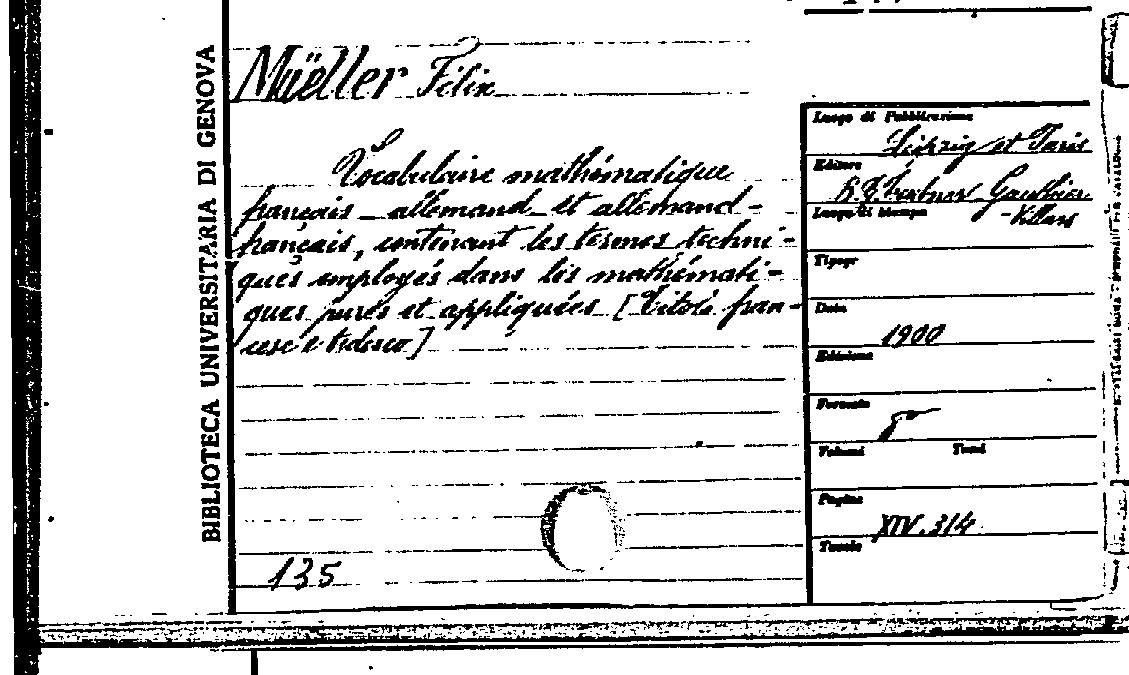 BIBLIOTECA UNIVERSITARIA DI GENOVA
Müeller Félix
Vocabulaire mathématique
français - allemand et allemand -
français, contenant les termes techni-
ques employés dans les mathémati-
ques pures et appliquées [Titolo fran-
cese e tedesco]
135
Luogo di Pubblicazione
Leipzig et Paris
Editore
B. G. Teubner Gauthier
-Villars
Luogo di stampa
Tipogr
Data
1900
Edizione
Formato
8°
Volumi Tomi
Pagine
XIV.314
Tavole